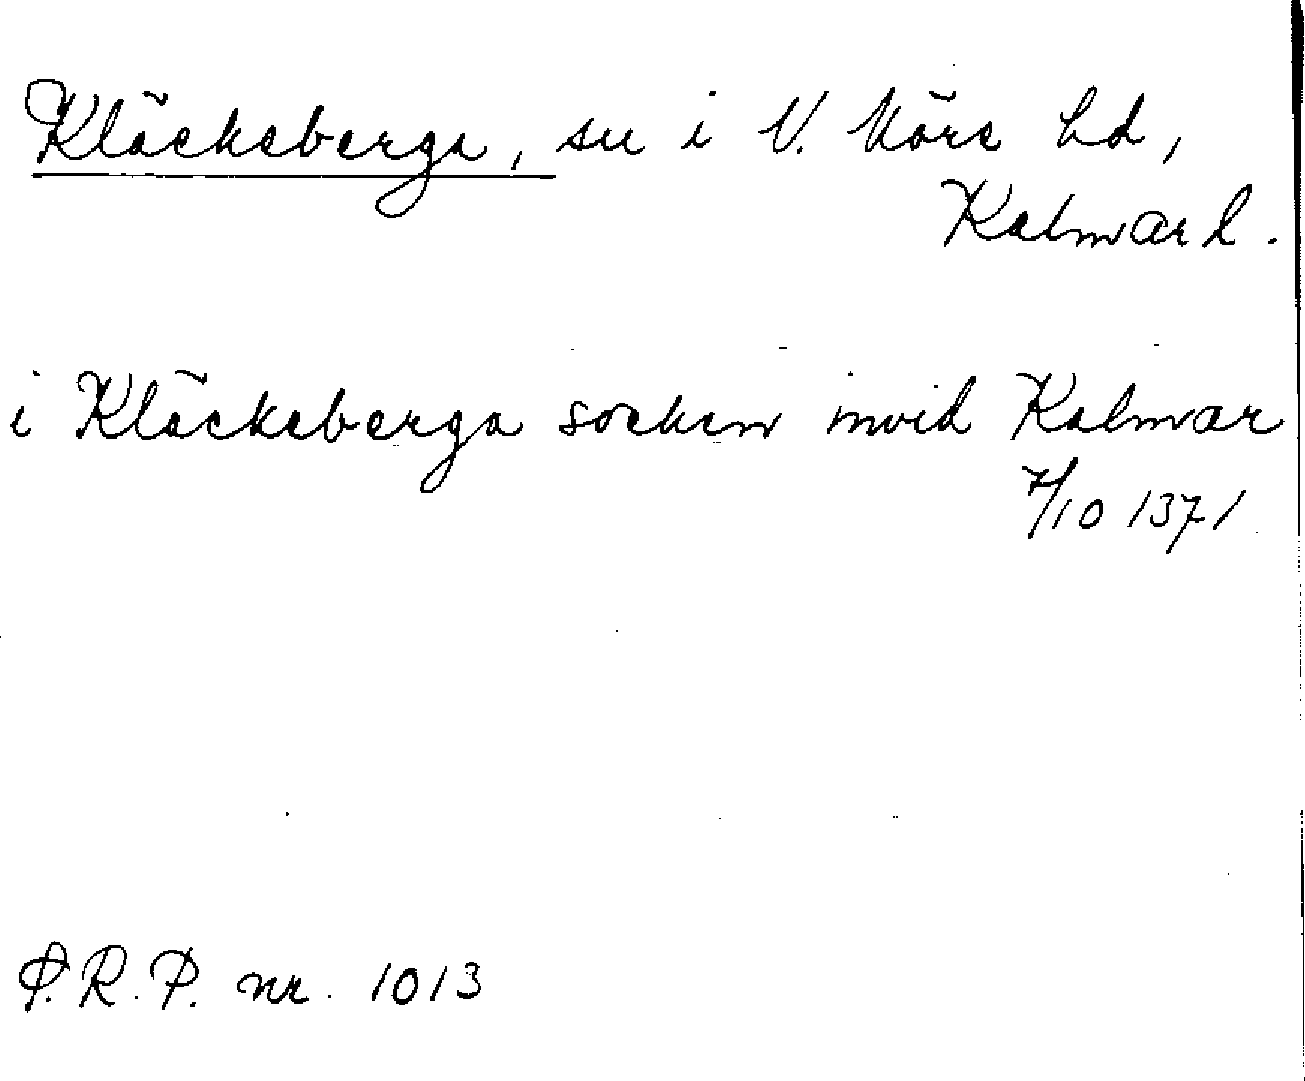 Kläckeberga, sn i N. Möre hd,
Kalmar l.
i Kläckeberga socken invid Kalmar
7/10 1371
P.R.P. nr. 1013